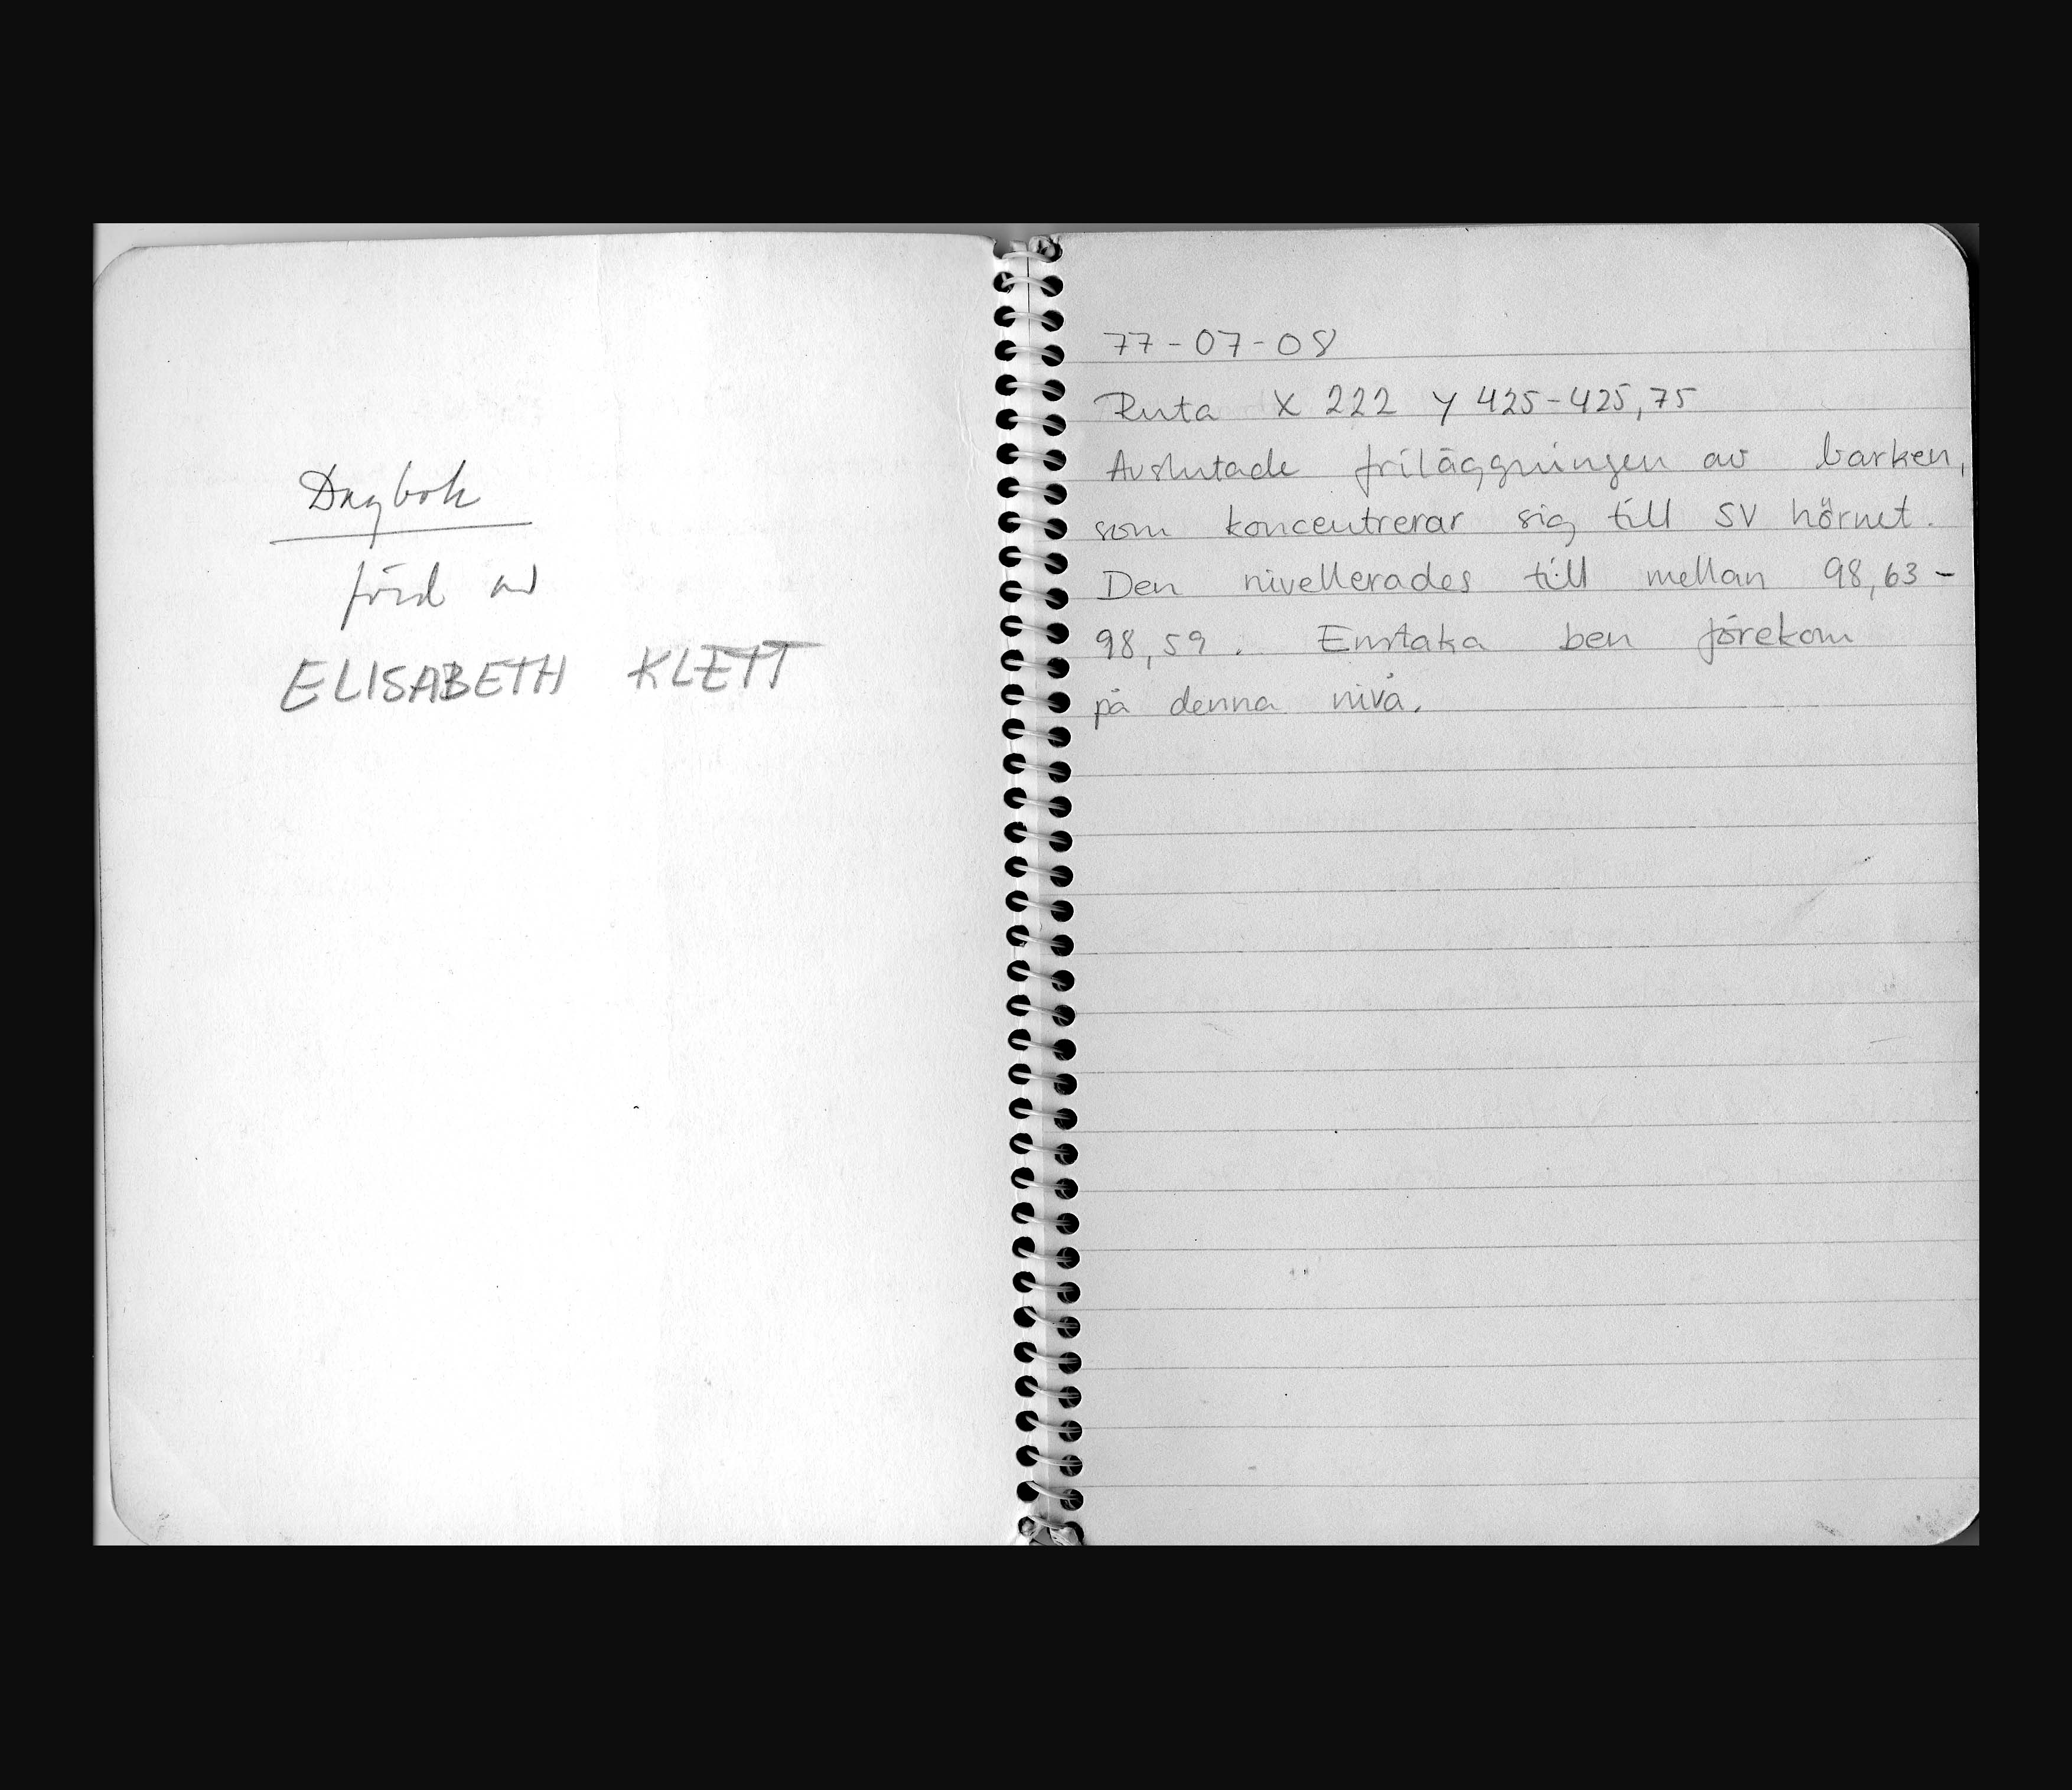 Dagbok
förd av
ELISABETH KLETT
77-07-08
Ruta X 222 Y 425-425,75
Avslutade friläggningen av barken,
som koncentrerar sig till SV hörnet.
Den nivellerades till mellan 98,63-
98,59. Enstaka ben förekom
på denna nivå.